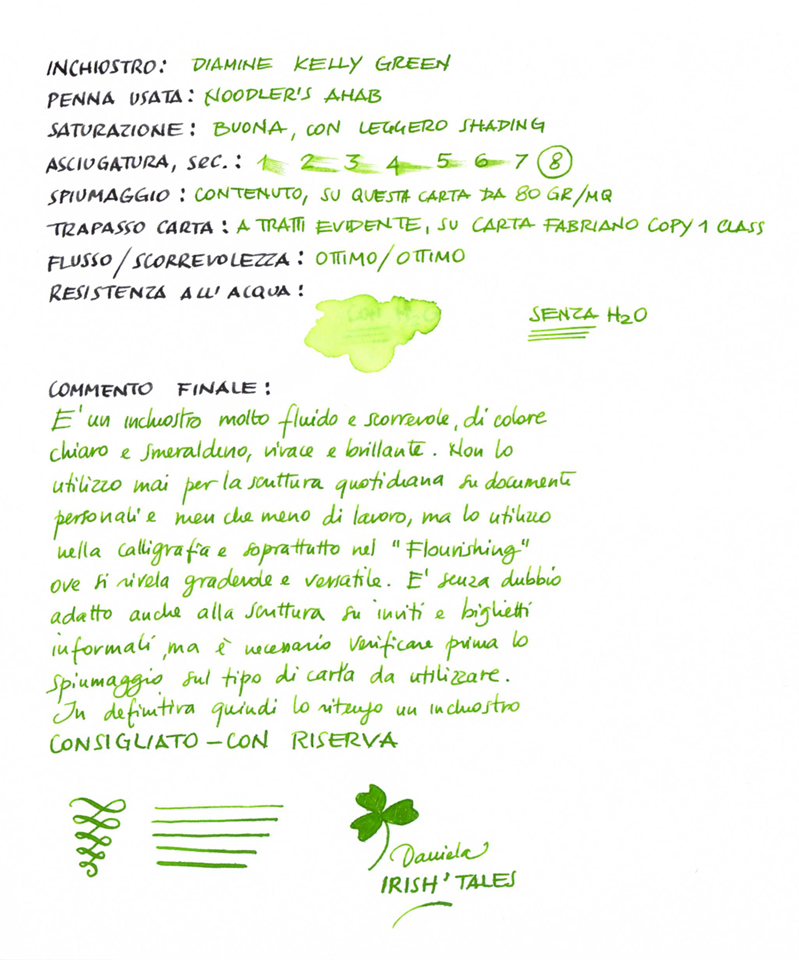 INCHIOSTRO: DIAMINE KELLY GREEN
PENNA USATA: NOODLER'S AHAB
SATURAZIONE: BUONA, CON LEGGERO SHADING
ASCIUGATURA, SEC.: 1 2 3 4 5 6 7 8
SPIUMAGGIO: CONTENUTO, SU QUESTA CARTA DA 80 GR/MQ
TRAPASSO CARTA: A TRATTI EVIDENTE, SU CARTA FABRIANO COPY 1 CLASS
FLUSSO/SCORREVOLEZZA: OTTIMO/OTTIMO
RESISTENZA ALL'ACQUA:
CON H2O SENZA H2O
COMMENTO FINALE:
E' un inchiostro molto fluido e scorrevole, di colore
chiaro e smeraldino, vivace e brillante. Non lo
utilizzo mai per la scrittura quotidiana su documenti
personali e men che meno di lavoro, ma lo utilizzo
nella calligrafia e soprattutto nel "Flourishing"
ove si rivela gradevole e versatile. E' senza dubbio
adatto anche alla scrittura su inviti e biglietti
informali, ma è necessario verificare prima lo
spiumaggio sul tipo di carta da utilizzare.
In definitiva quindi lo ritengo un inchiostro
CONSIGLIATO - CON RISERVA
Daniela
IRISH'TALES